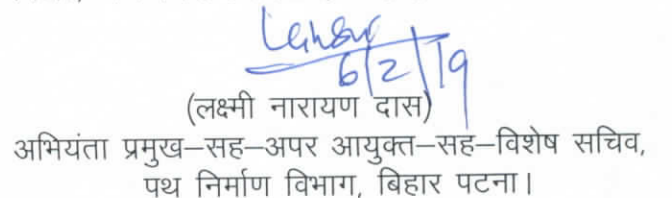 6/2/19
(लक्ष्मी नारायण दास)
अभियंता प्रमुख–सह–अपर आयुक्त–सह–विशेष सचिव,
पथ निर्माण विभाग, बिहार पटना।